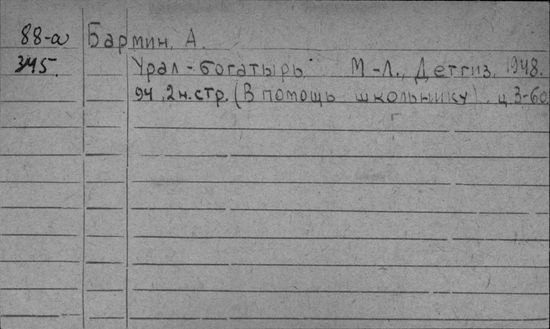 88-а Бармин, А.
345. Урал-богатырь М-Л., Детгиз, 1948.
94, 2 н. стр. (В помощь школьнику) ц. 3-60